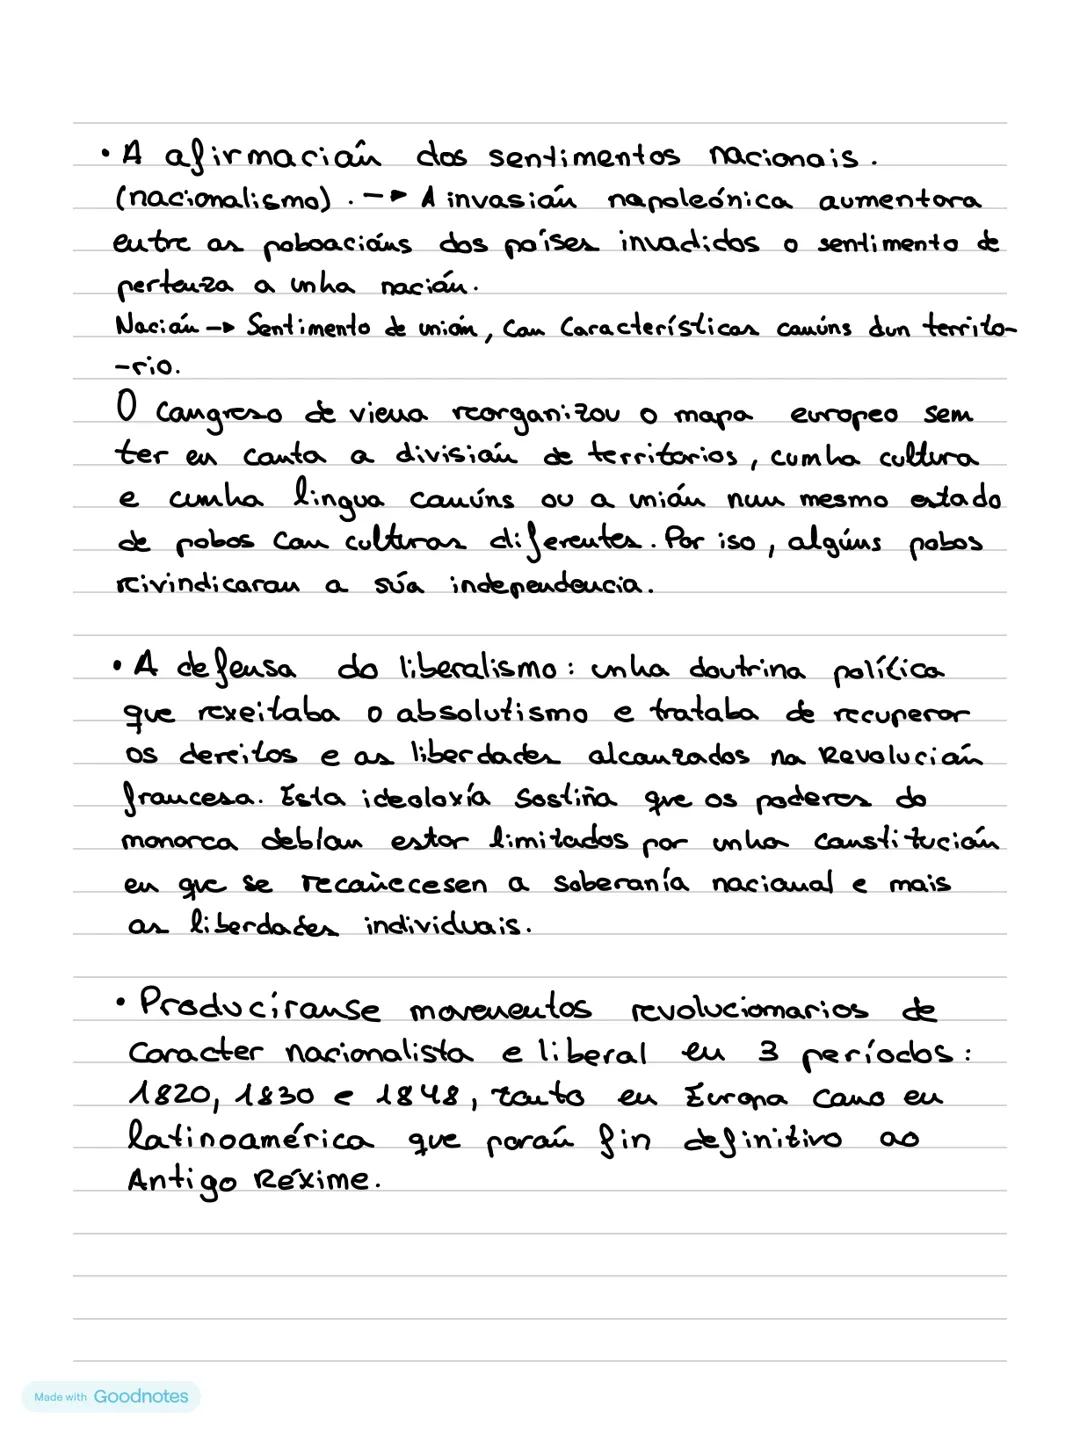 • A afirmación dos sentimentos nacionais.
(nacionalismo). -→ A invasión napoleónica aumentora
entre as poboacións dos países invadidos o sentimento de
pertenza a unha nación.
Nación → Sentimento de unión, con Características comúns dun territo-
-rio.
O Congreso de viena reorganizou o mapa europeo sem
ter en conta a división de territorios, cunha cultura
e cunha lingua comúns ou a unión nun mesmo estado
de pobos con culturas diferentes. Por iso, algúns pobos
reivindicaron a súa independencia.
• A defensa do liberalismo: unha doutrina política
que rexeitaba o absolutismo e trataba de recuperar
os dereitos e as liberdades alcanzados na Revolución
francesa. Esta ideoloxía Sostiña que os poderes do
monarca debían estar limitados por unha constitución
en que se recoñecesen a soberanía nacional e mais
as liberdades individuais.
• Producíronse movementos revolucionarios de
Caracter nacionalista e liberal en 3 períodos:
1820, 1830 e 1848, tanto en Europa como en
latinoamérica que porán fin definitivo ao
Antigo Réxime.
Made with Goodnotes